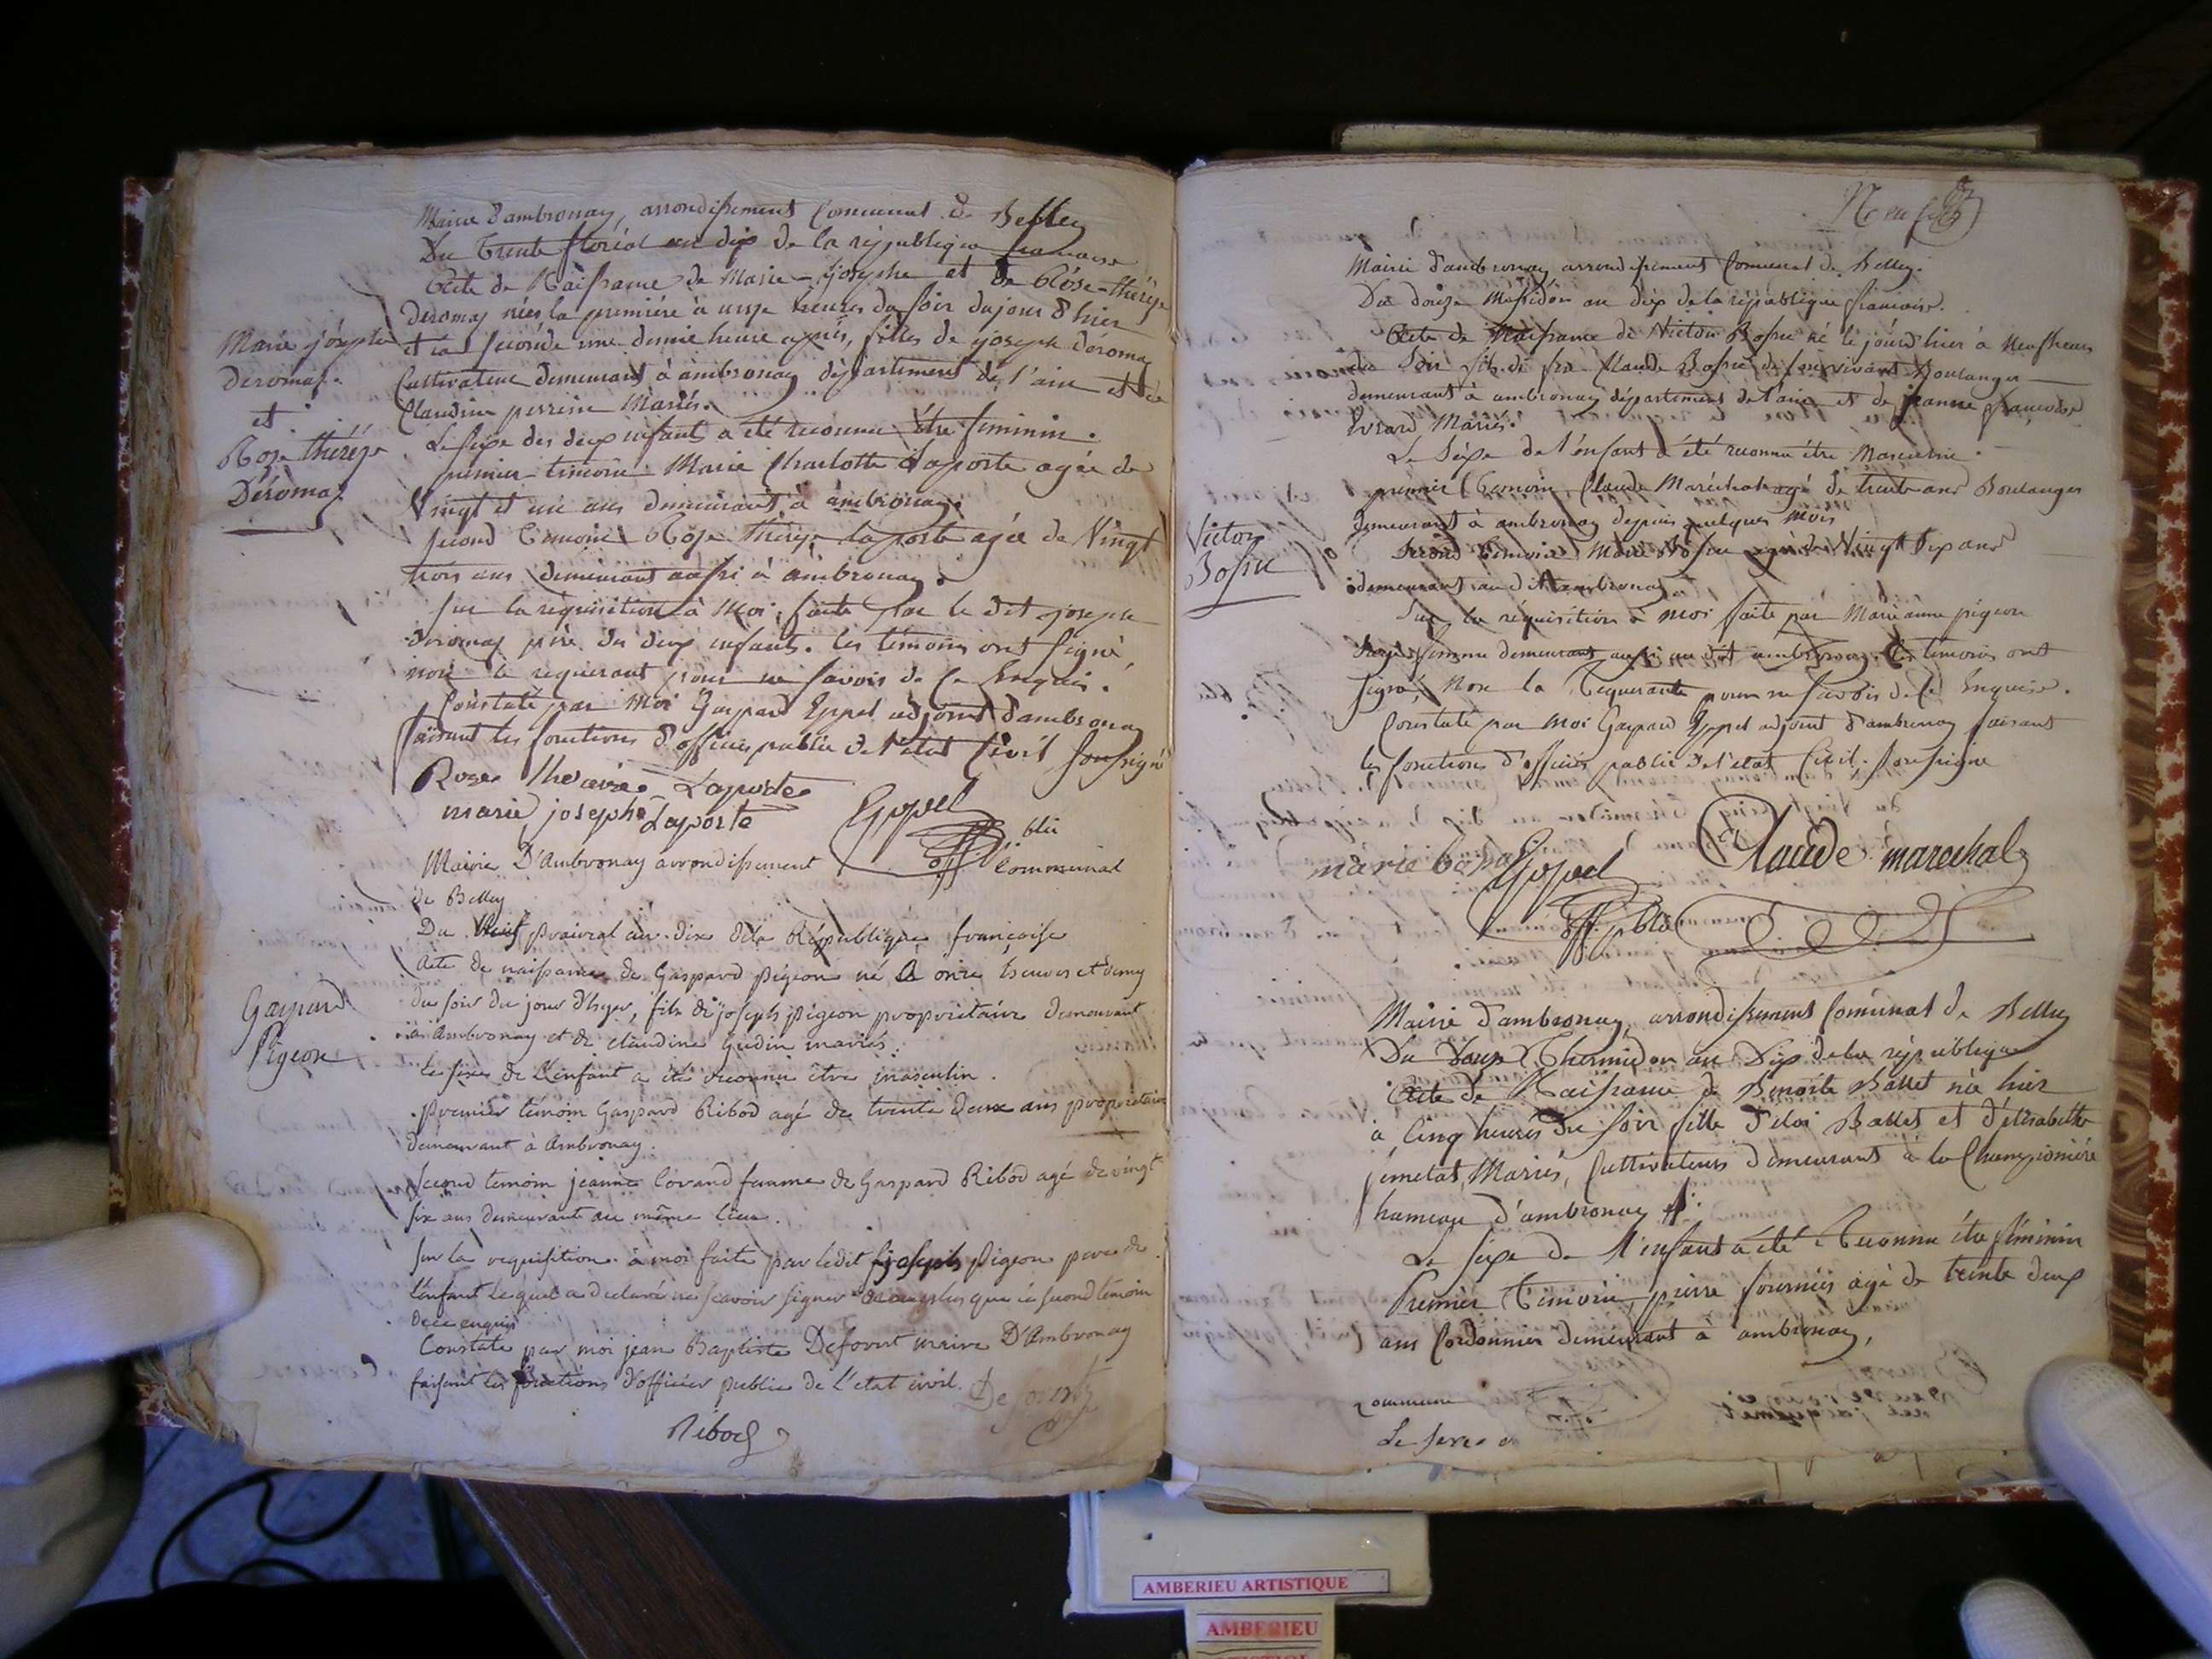 Mairie d'ambronay, arrondissement Communal de Belley
Du trente floréal an dix de la république francaise
Acte de Naissance de Marie-josephe et de Rose-thérèze
Deromas nées la premiére à onze heures du soir du jour d'hier
et la seconde une demie heure après, filles de joseph deromas
Cultivateur demeurant à ambronay département de l'ain et de
Claudine perrin Mariés.
Marie josephe
deromas.
et
Rose thérèze
Déromas
Le sexe des deux enfants a été reconnu être féminin.
premier témoin Marie Charlotte Laporte agée de
Vingt et un ans demeurant à ambronay.
second témoin Rose thérèze laporte agée de Vingt
trois ans demeurant aussi à ambronay.
sur la réquisition à moi faite par le dit joseph
deromas père des deux enfants. les témoins ont signé
non le requerant pour ne savoir de ce Enquis.
Constaté par Moi Gaspard Eppel adjoint d'ambronay
faisant les fonctions d'officier public de l'etat Civil soussigné
Rose theraise Laporte
marie josephe Laporte
Eppel
off blic
Mairie D'Ambronay arrondissement Communal
de Belley
Du prairial an dix de la République francaise
Acte de naissance de Gaspard pigeon né à onze heures et demy
du soir du jour d'hyer, fils de joseph pigeon propriétaire demeurant
à Ambronay et de claudine Gudin mariés.
Gaspard
Pigeon
le sixe de L'enfant a été reconnu être masculin.
premier témoin Gaspard Ribod agé de trente deux ans propriétaire
demeurant à Ambronay.
second temoin jeanne Covand femme de Gaspard Ribod agé de vingt
six ans demeurant au même lieu.
sur la requisition à moi faite par ledit joseph pigeon pere de
l'enfant lequel a declaré ne scavoir signer que le second témoin
dece enquis
Constaté par moi jean Baptiste Deforest maire D'Ambronay
faisant les fonctions d'officier public de L'etat civil.
Ribod
Neuf
Mairie d'ambronay arrondissement Communal de Belley.
Du douze Messidor an dix de la république francaise.
Acte de Naissance de Victor Bossu né le jourd'hier à Neuf heures
du Soir fils de feu Claude Bossu de son vivant Boulanger
demeurant à ambronay département de l'ain et de jeanne francoise
Evrard Mariés.
Le Sexe de l'enfant a été reconnu être Masculin.
premier témoin Claude Maréchal agé de trente ans Boulanger
demeurant à ambronay depuis quelques mois
Victor
Bossu
Second témoin Marie Bossu agée de Vingt Six ans
demeurant au dit ambronay.
Sur la réquisition à moi faite par Marianne pigeon
sage femme demeurant aussi au dit ambronay. les témoins ont
signé, Non la Requerante pour ne savoir de ce Enquise.
Constaté par Moi Gaspard Eppel adjoint d'ambronay faisant
les fonctions d'officier public de l'etat Civil. soussigné
Claude marechal
marie
Eppel
off pblic
Mairie d'ambronay, arrondissement Comunal de Belley
Du Thermidor an Dix de la république
Acte de Naissance de Benoite Ballet née hier
à Cinq heures du soir fille d'eloi Ballet et d'élisabethe
jemetat, Mariés, Cultivateurs demeurant à la Championiére
hameau d'ambronay
Le sexe de l'enfant a été Reconnu être féminin
Premier témoin, pierre fournier agé de trente deux
ans Cordonnier demeurant à ambronay,
commune
Le sexe d
AMBERIEU ARTISTIQUE
AMBERIEU